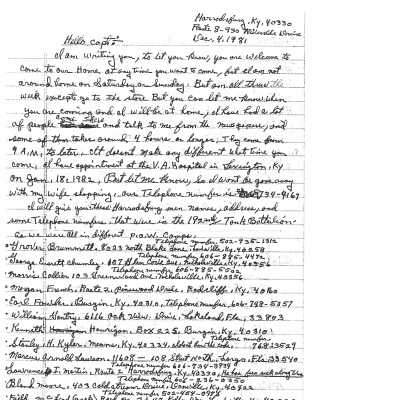 Harrodsburg, Ky. 40330
Route 8-930
Dec. 4, 1981
Hello Capt.
I am writing you, to let you know, you are welcome to
come to our Home at any time you want to come, but I am not
around home on Saturday or Sunday. But am all thru the
week except go to the store But you can let me know when
you are coming and I will be at home, I have had a lot
of people come here and talk to me from the newspapers, and
some of them takes around 4 hours or longer, They come from
9 A.M. to later. It doesnt make any different what time you
come, I have appointment at the V.A. Hospital in Lexington, Ky
on Jan. 18, 1982, (But let me know, so I wont be gone away
with my wife shopping. our Telephone number is 734-9167
I will give you these Harrodsburg men name, address, and
some Telephone numbers. that were in the 192nd Tank Battalion.
as we were all in different P.O.W. Camps.
Telephone number. 502-935-1312
Grover Brummett. 8023 north Lane, Ky. 40258
Telephone 606-885-4492
George Chumley. 607 Nicholasville, Ky, 40356
Telephone number 606-885-5502
Morris Collier 103 Greenwood ave. Nicholasville, Ky, 40356
Morgan French, Route 2, Drive, Radcliff, Ky, 40160
Earl Fowler, Burgin, Ky, 40310, Telephone number, 606-748-5057
William Gentry, 6116 View. Drive, Lakeland, Fla, 33803
Kenneth Hourigan, Box 225, Burgin, Ky, 40310
Telephone number
Stanley, H. Kyler, Ky. 40324, 7682529
Marcus Arnold Lawson. 11608 - 108, Street North, Largo, Fla 33540
Telephone number 606-734-3979
Lawrence Martin, Route 2, Harrodsburg, Ky, 40330,
Telephone number 606-236-0350
Bland Moore, 403 Cold Stream Drive, Danville, Ky, 40422
Telephone number 502-454-0978